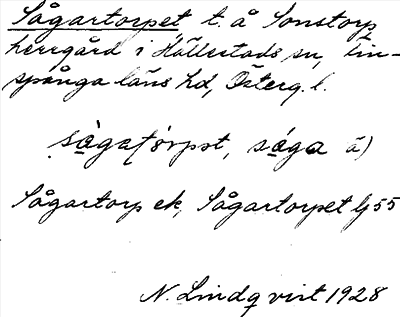 Sågartorpet t. å Sonstorp
herrgård i Hällestads sn, Fin-
spånga läns hd, Österg. l.
sågatórpət, såga ä)
Sågartorp ek, Sågartorpet Lj 55
N. Lindqvist 1928